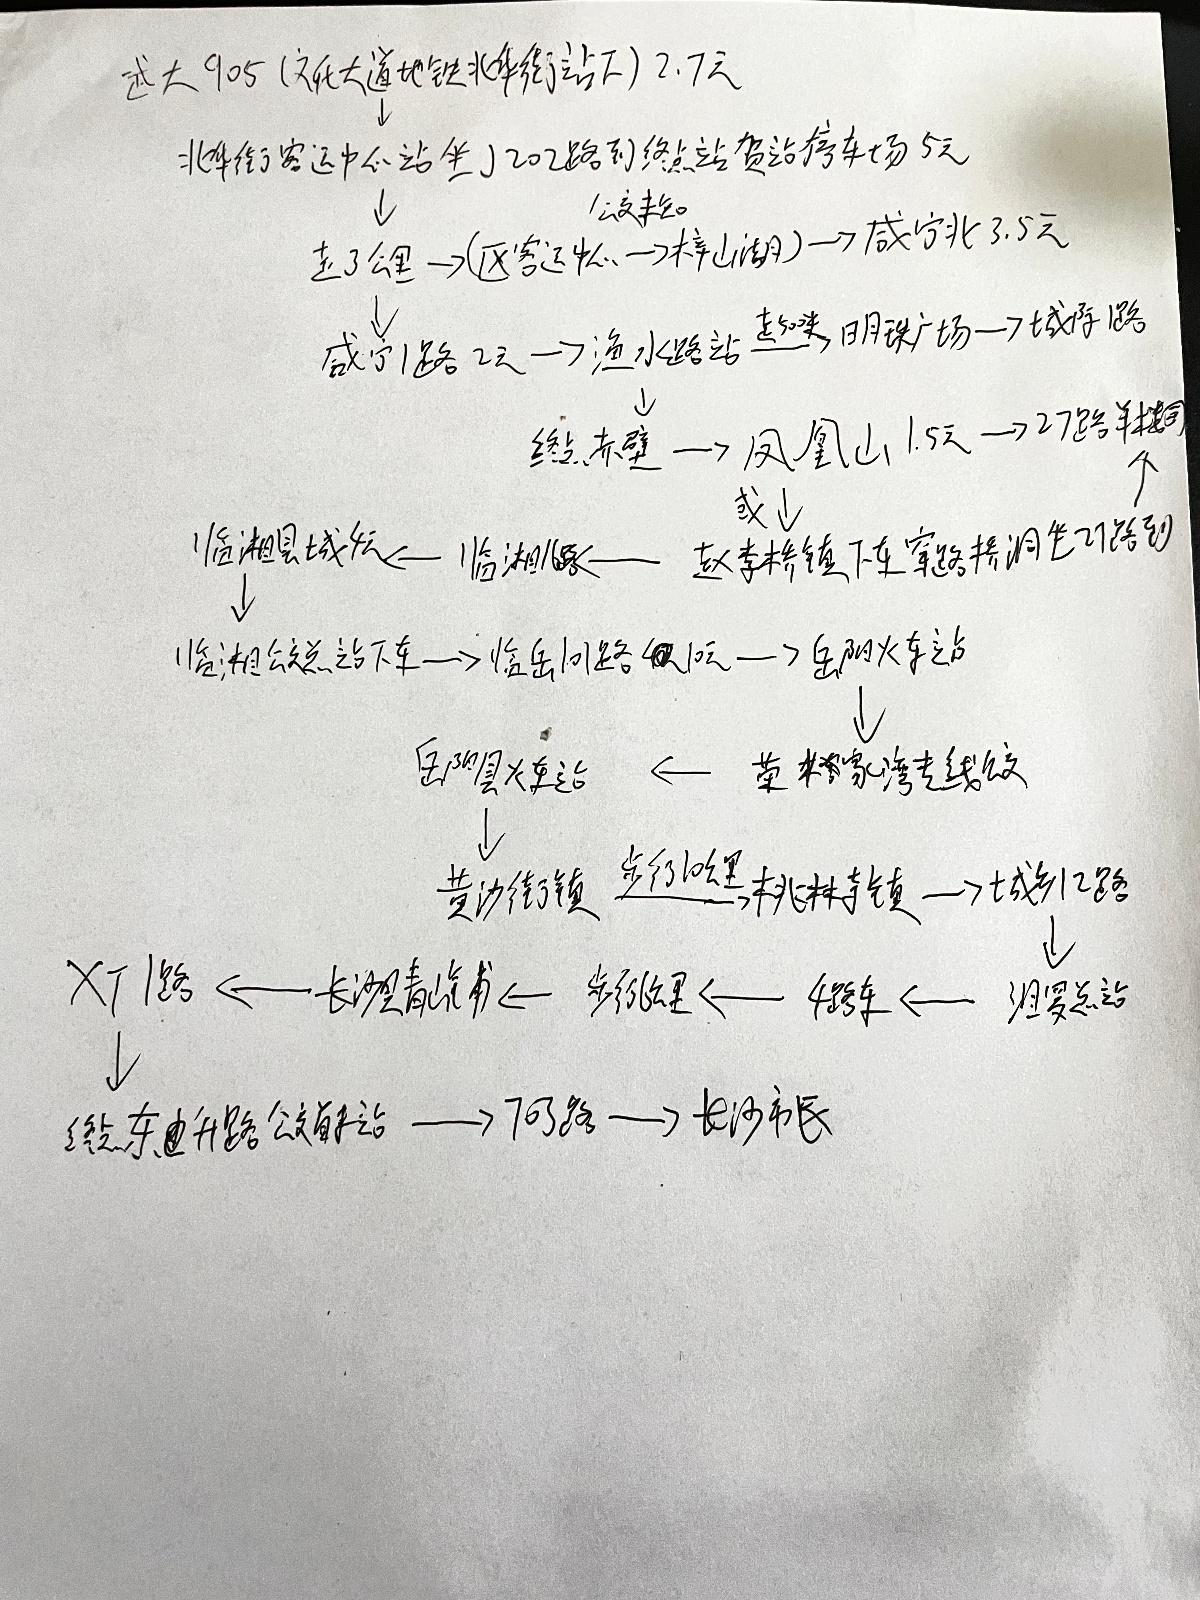 武大905(文化大道地铁北华街站下)2.7元
↓
北华街客运中心站坐J202路到终点站贺站停车场5元
↓ 公交未知
走3公里→(区客运中心→梓山湖)→咸宁北3.5元
↓
咸宁1路2元→渔水路站 走500米→ 明珠广场→城际1路
↓
终点赤壁→凤凰山1.5元→27路羊楼洞
或↓ ↑
临湘县城4元←临湘16路←赵李桥镇下车穿路桥洞坐27路到
↓
临湘公交总站下车→临岳101路10元→岳阳火车站
↓
岳阳县火车站 ← 荣家湾专线公交
↓
黄沙街镇 步行10公里→桃林寺镇→城乡12路
↓
XT1路←长沙县青山铺←步行8公里←4路车←汨罗总站
↓
终点东迪升路公交首末站→703路→长沙市民